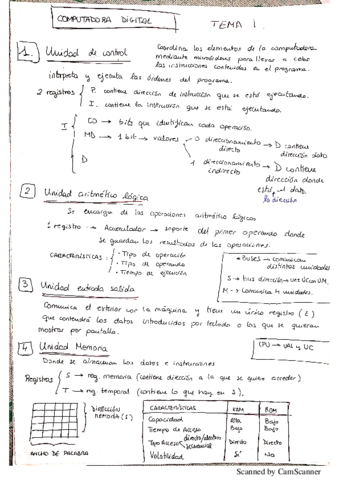 COMPUTADORA DIGITAL
TEMA 1.
1 Unidad de control
Coordina los elementos de la computadora
mediante microórdenes para llevar a cabo
las instrucciones contenidas en el programa.
interpreta y ejecuta las órdenes del programa.
2 registros
P. contiene dirección de instrucción que se está ejecutando.
I. contiene la instrucción que se está ejecutando.
I
CO → bits que identifican cada operación.
MD → 1 bit → valores
0 direccionamiento directo → D contiene dirección dato
1 direccionamiento indirecto → D contiene dirección donde está el dato
D
2 Unidad aritmético lógica
Se encarga de las operaciones aritmético lógicas
1 registro → Acumulador → soporte del primer operando donde
se guardan los resultados de las operaciones.
CARACTERÍSTICAS:
- Tipo de operación
- Tipo de operando
- Tiempo de ejecución
* BUSES → comunican
distintas unidades
S → bus dirección → UC con UM.
M → comunica 4 unidades.
3 Unidad entrada salida
Comunica el exterior con la máquina y tiene un único registro (E)
que contendrá los datos introducidos por teclado o los que se quieran
mostrar por pantalla.
4 Unidad Memoria
CPU → UAL y UC
Donde se almacenan los datos e instrucciones
Registros
S → reg. memoria (contiene dirección a la que se quiere acceder)
T → reg temporal (contiene lo que hay en S).
DIRECCIÓN
MEMORIA (S)
ANCHO DE PALABRA
CARACTERÍSTICAS
Capacidad Alta Baja
Tiempo de Acceso Bajo Bajo
Tipo Acceso directo/destino secuencial Directo Directo
Volatilidad Sí No
Scanned by CamScanner